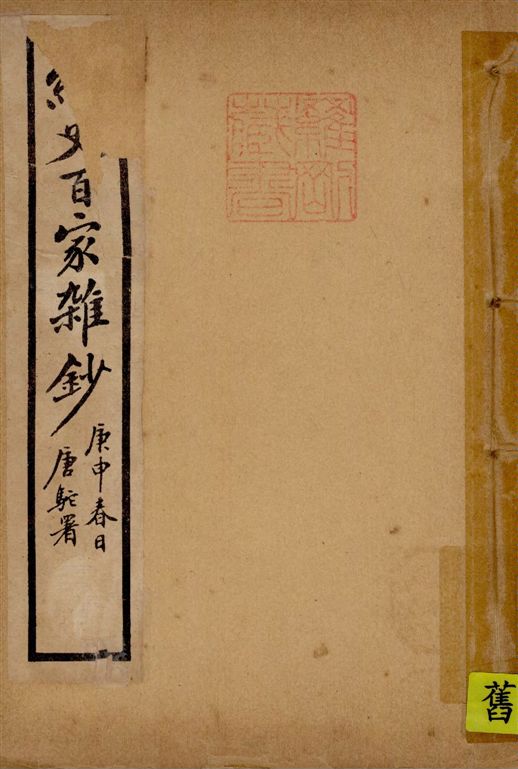 百家雜鈔
庚申春日
唐駝署
藏書
舊